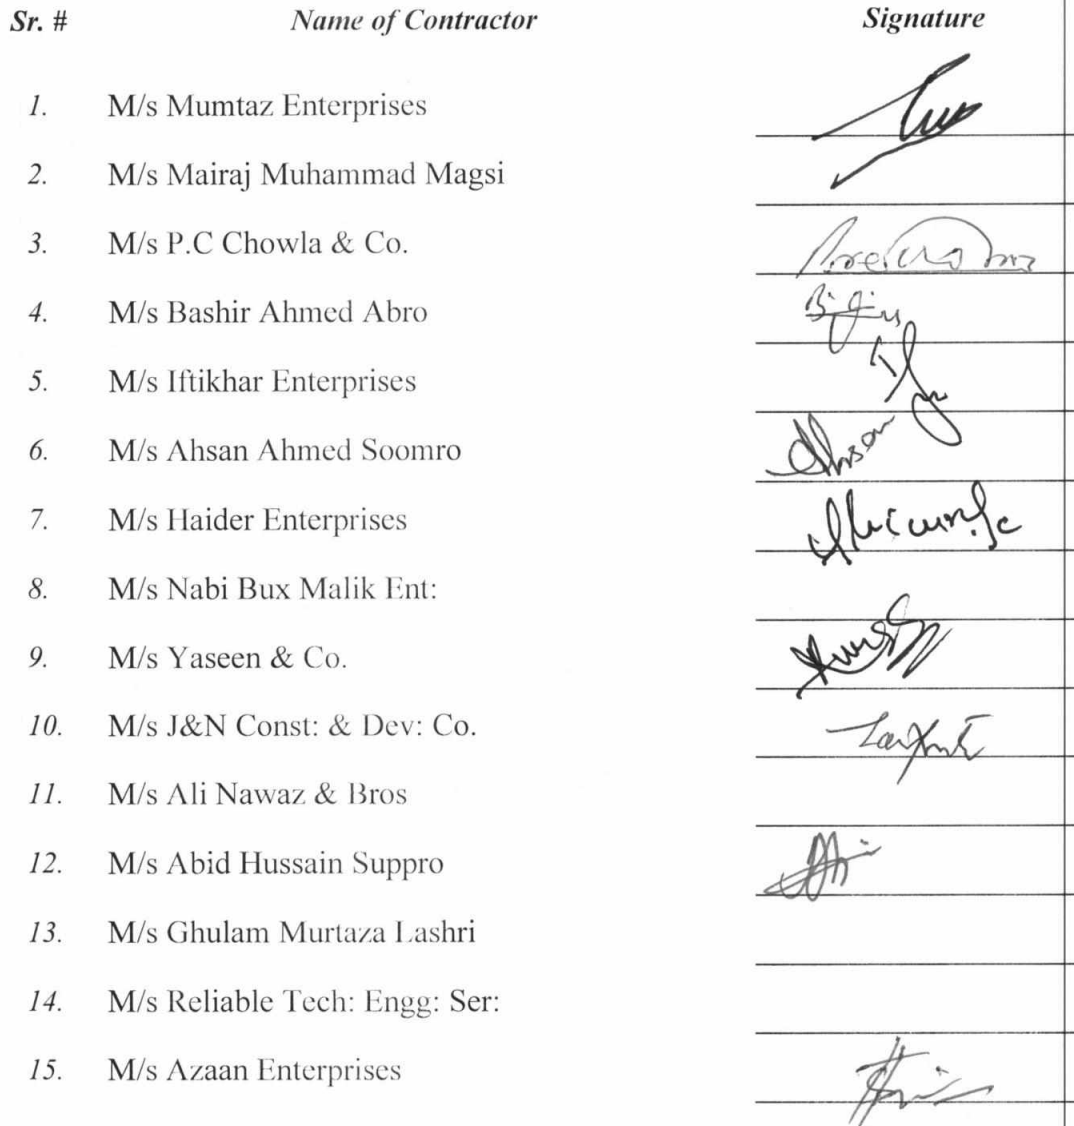 Sr. # Name of Contractor Signature
1. M/s Mumtaz Enterprises
2. M/s Mairaj Muhammad Magsi
3. M/s P.C Chowla & Co.
4. M/s Bashir Ahmed Abro
5. M/s Iftikhar Enterprises
6. M/s Ahsan Ahmed Soomro
7. M/s Haider Enterprises
8. M/s Nabi Bux Malik Ent:
9. M/s Yaseen & Co.
10. M/s J&N Const: & Dev: Co.
11. M/s Ali Nawaz & Bros
12. M/s Abid Hussain Suppro
13. M/s Ghulam Murtaza Lashri
14. M/s Reliable Tech: Engg: Ser:
15. M/s Azaan Enterprises